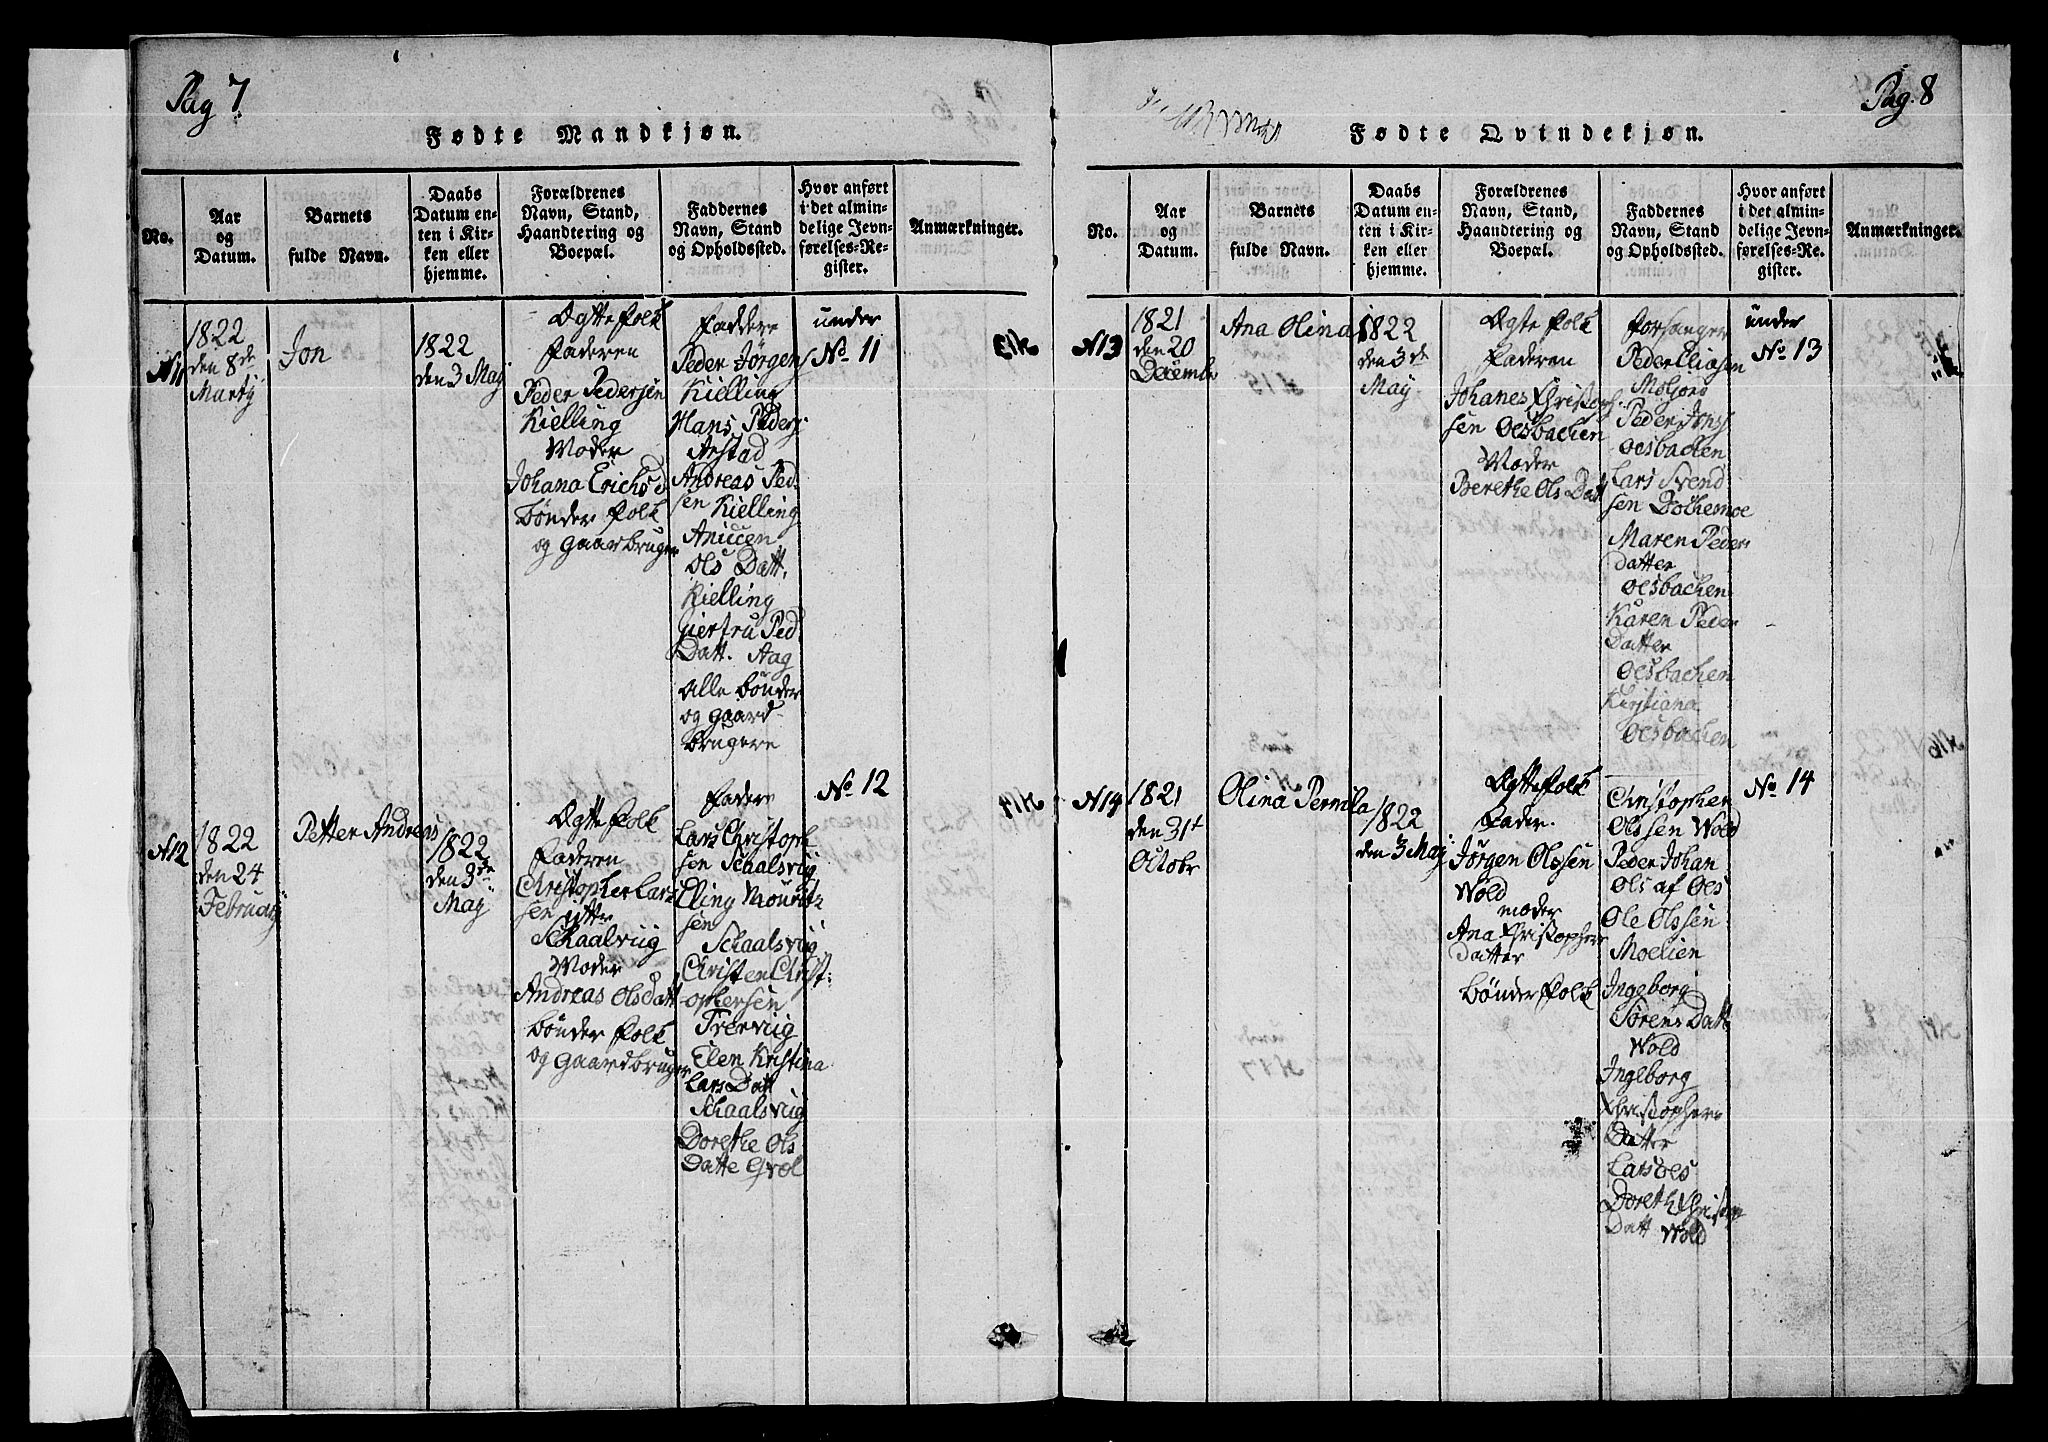 Pag 7
Fødte Mandkjøn.
No.
Aar
og
Datum.
Barnets
fulde Navn.
Daabs
Datum en-
ten i Kir-
ken eller
hjemme.
Forældrenes
Navn, Stand,
Haandtering og
Boepæl.
Faddernes
Navn, Stand
og Opholdssted.
Hvor anført
i det almin-
delige Jevn-
førelses-Re-
gister.
Anmærkninger.
N11
1822
den 8de
Martij
Jon
1822
den 3 Maj
Ægtefolk
Faderen
Peder Pedersen
Kielling
Moder
Johana Erichsd
bønder folk
og gaarbruger
Faddere
Peder Jörgens
Kielling
Hans Peders
Arstad
Andreas Ped
sen Kielling
Anicen
Ols Datt.
Kielling
giertru Ped
Datt. Aag
Alle bönder
og gaard-
brugere
under
No 11
N12
1822
den 24
Februarij
Petter Andreas
1822
den 3de
Maj
Ægtefolk
Faderen
Christopher Lar
sen ytter
Schaalvig
Moder
Andreas Olsdatt
bönder folk
og gaardbruger
Fadere
Lars Christoph
sen Schaalsvig
Eling Mouritz
sen
Schaalsvig
Christen Christ-
ophersen
Trervig
Elen Kristina
Lars Datt
Schaalsvig
Dorethe Ols
Datte Gröl
No 12
Pag. 8
Fødte Qvindekjøn.
No.
Aar
og
Datum.
Barnets
fulde Navn.
Daabs
Datum en-
ten i Kir-
ken eller
hjemme.
Forældrenes
Navn, Stand,
Haandtering og
Boepæl.
Faddernes
Navn, Stand
og Opholdssted.
Hvor anført
i det almin-
delige Jevn-
førelses-Re-
gister.
Anmærkninger.
N13
1821
den 20
Decemb
Ana Olina
1822
den 3de
May
Ægte folk
Faderen
Johanes Christoph
sen Oesbachen
Moder
Berethe Ols Datt
Forsanger
Peder Eliasen
Moljord
Peder Jons
oesbachen
Lars Svend
sen Dochemoe
Maren Peder
Datter
oesbachen
Karen Peder
Datter
Oesbachen
Kirstiana
Oesbachen
under
No 13
N14
1821
den 31t
Octobr
Olina Pernila
1822
den 3 Maj
Ægtefolk
Fader.
Jörgen Olssen
Wold
moder
Ana Christopher
Datter
bönder folk
Christopher
Olssen Wold
Peder Johan
Ols af Oes
Ole Olssen
Moelien
Ingeborg
Sörens Datt
Wold
Ingeborg
Christophers
Datter
Larsoes
Doreth Christop
Datt Wold
No 14